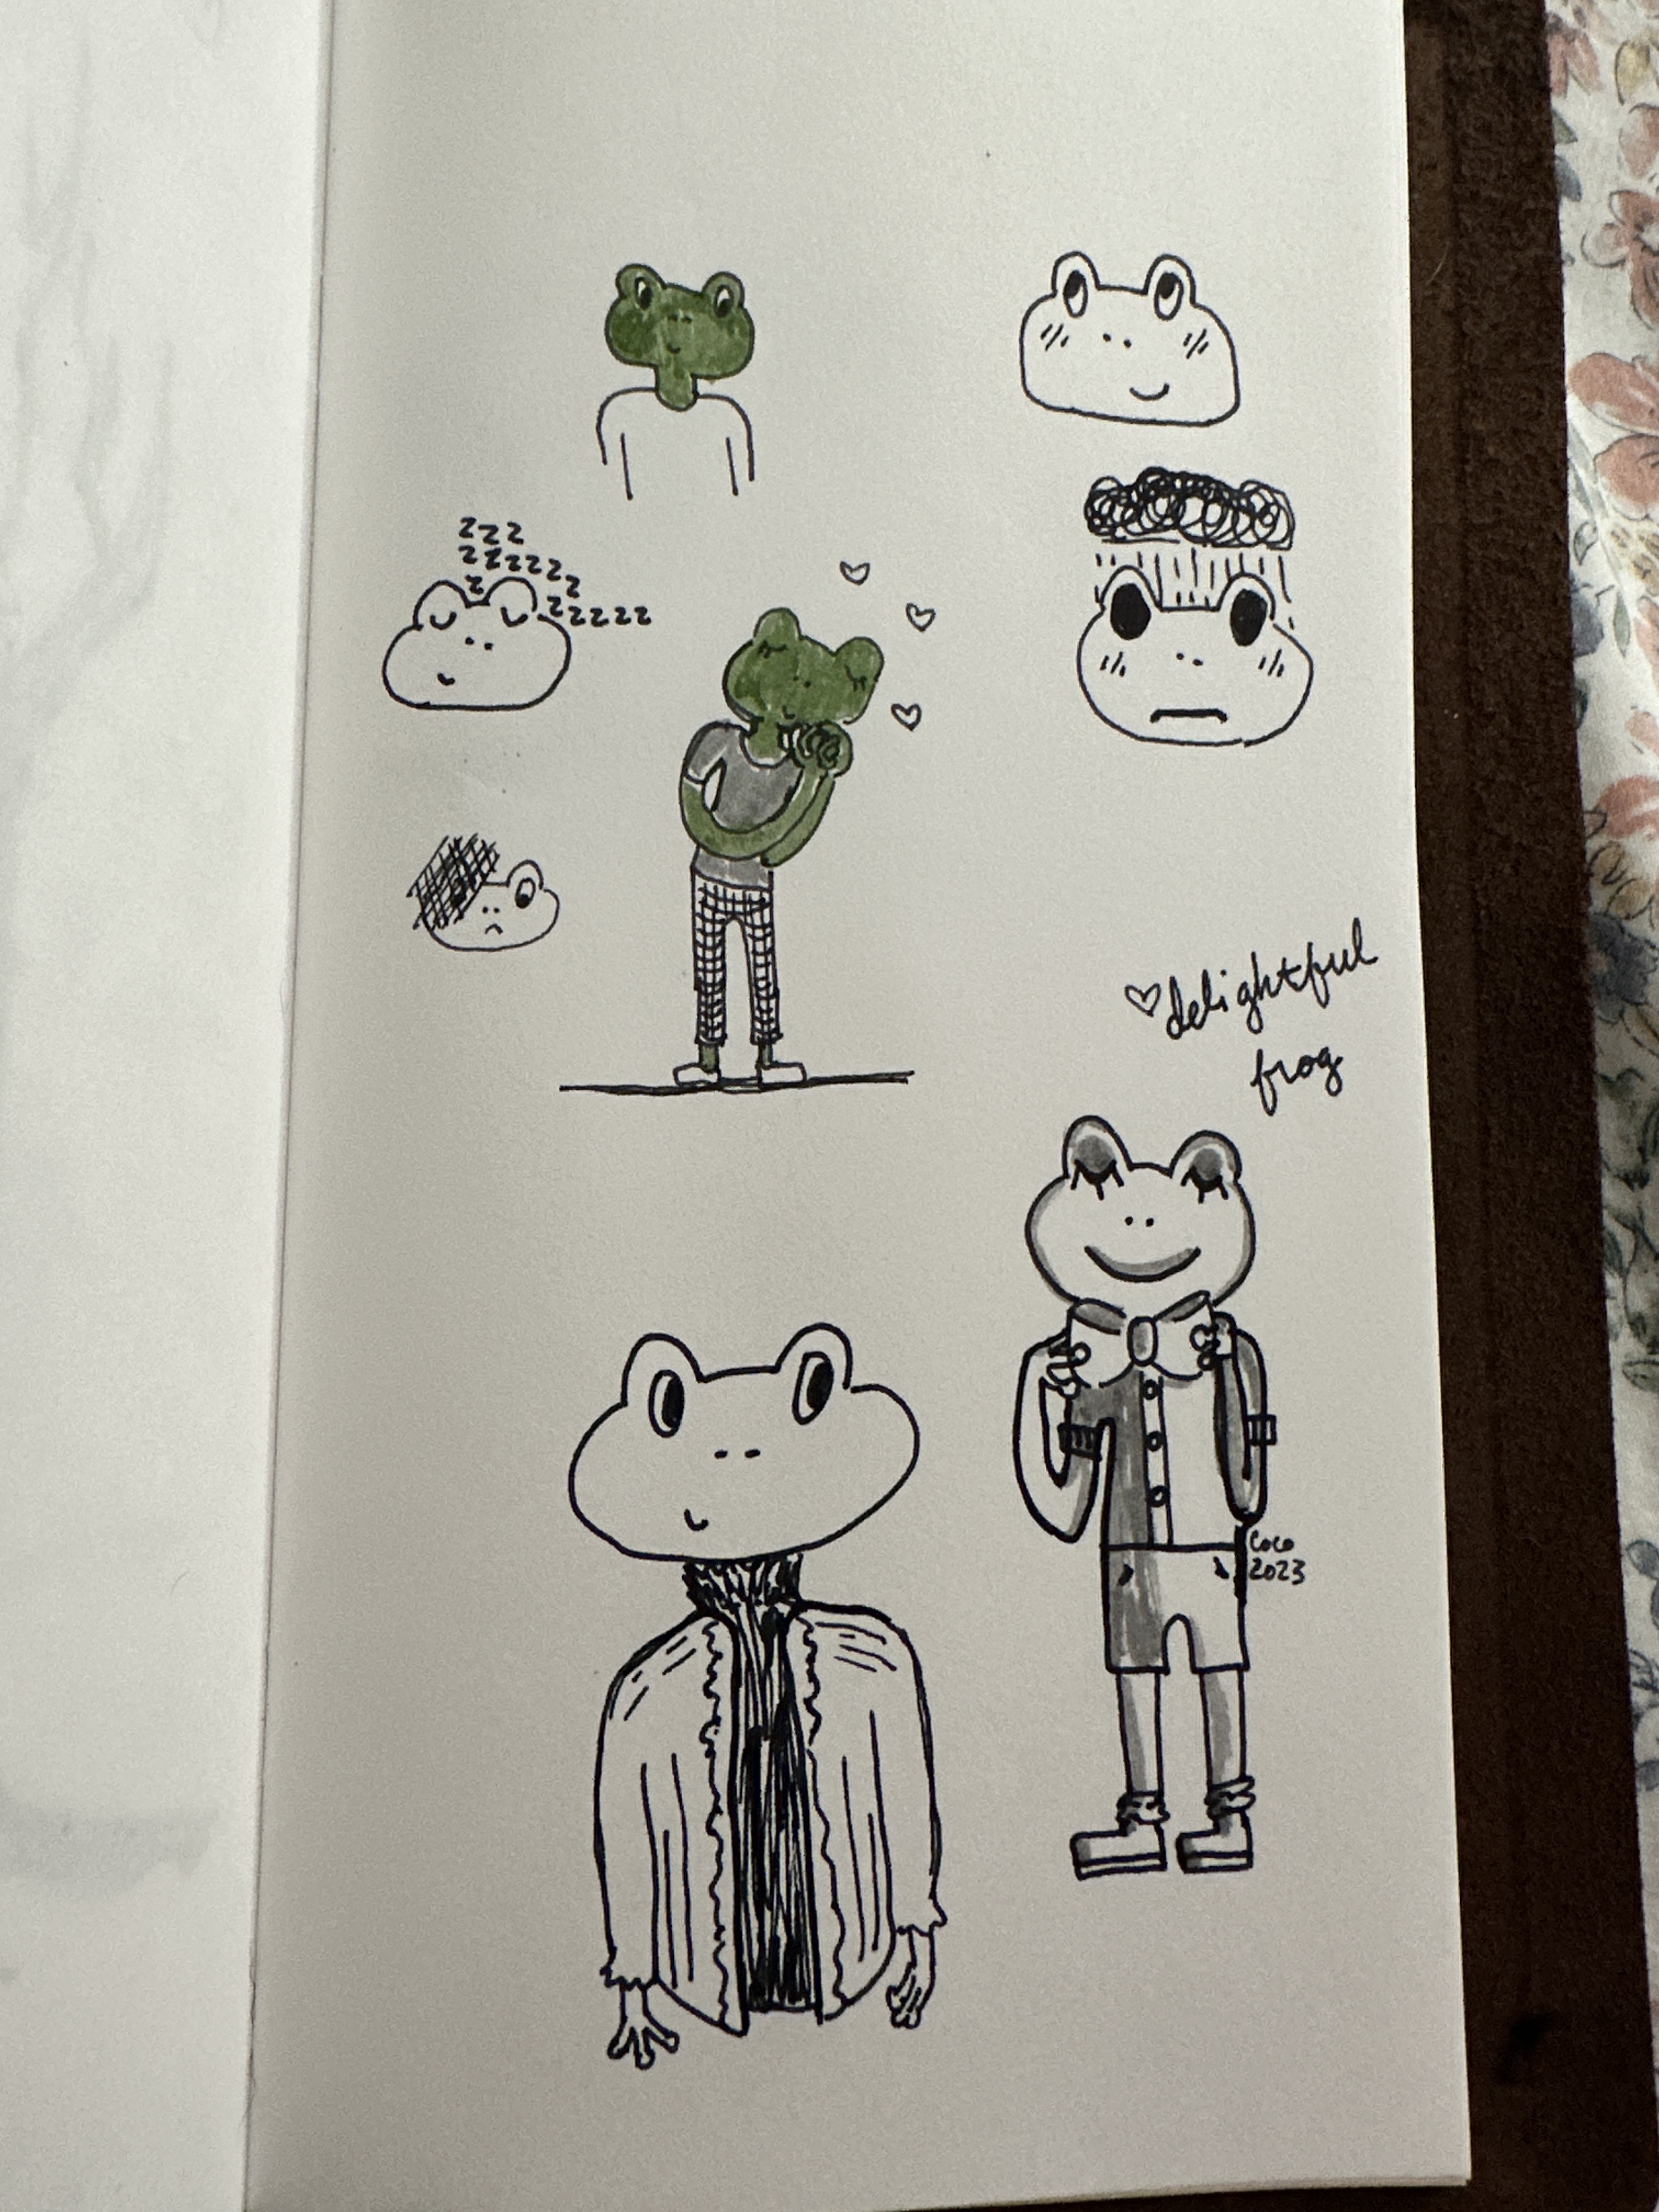 zzz
zzzzzz
z z
zzzzz
♡delightful
frog
Coco
2023